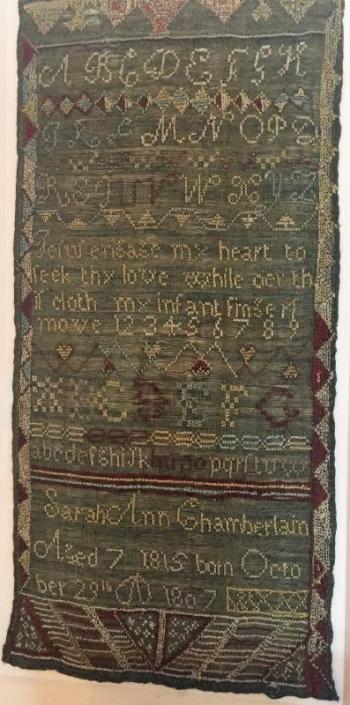 A B C D E F G H
I K L M N O P Q
R S T U V W X Y Z
Jesus engage my heart to
seek thy love while oer th
is cloth my infant fingers
move 1 2 3 4 5 6 7 8 9
E F G
abcdefghijk lmno pqrstuvwx
Sarah Ann Chamberlain
Aged 7 1815 born Octo
ber 29th AD 1807